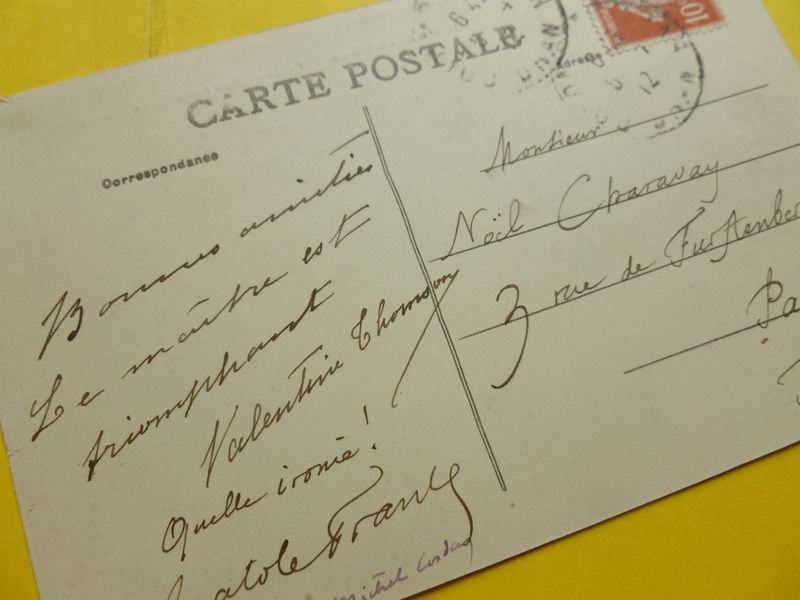 CARTE POSTALE
Correspondance
Adresse
10
Bonnes amitiés
Le maître est
triomphant
Valentine Thomson
Quelle ironie!
atole France
Michel Corday
Monsieur
Noël Charavay
3 rue de Furstenber
Pa